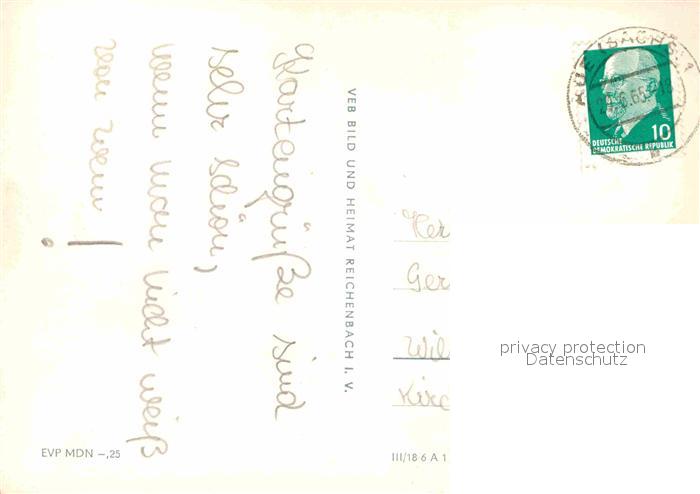 Kartengrüße sind
sehr schön,
wenn man nicht weiß
von wem!
VEB BILD UND HEIMAT REICHENBACH I. V.
AUE (SACHS) 1
10
DEUTSCHE
DEMOKRATISCHE REPUBLIK
Her
Ger
Wil
Kirc
privacy protection
Datenschutz
EVP MDN –,25
III/18 6 A 1